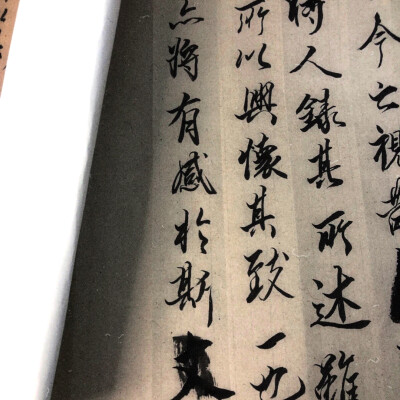 今之視昔
時人錄其所述雖
所以興懷其致一也
亦將有感於斯文